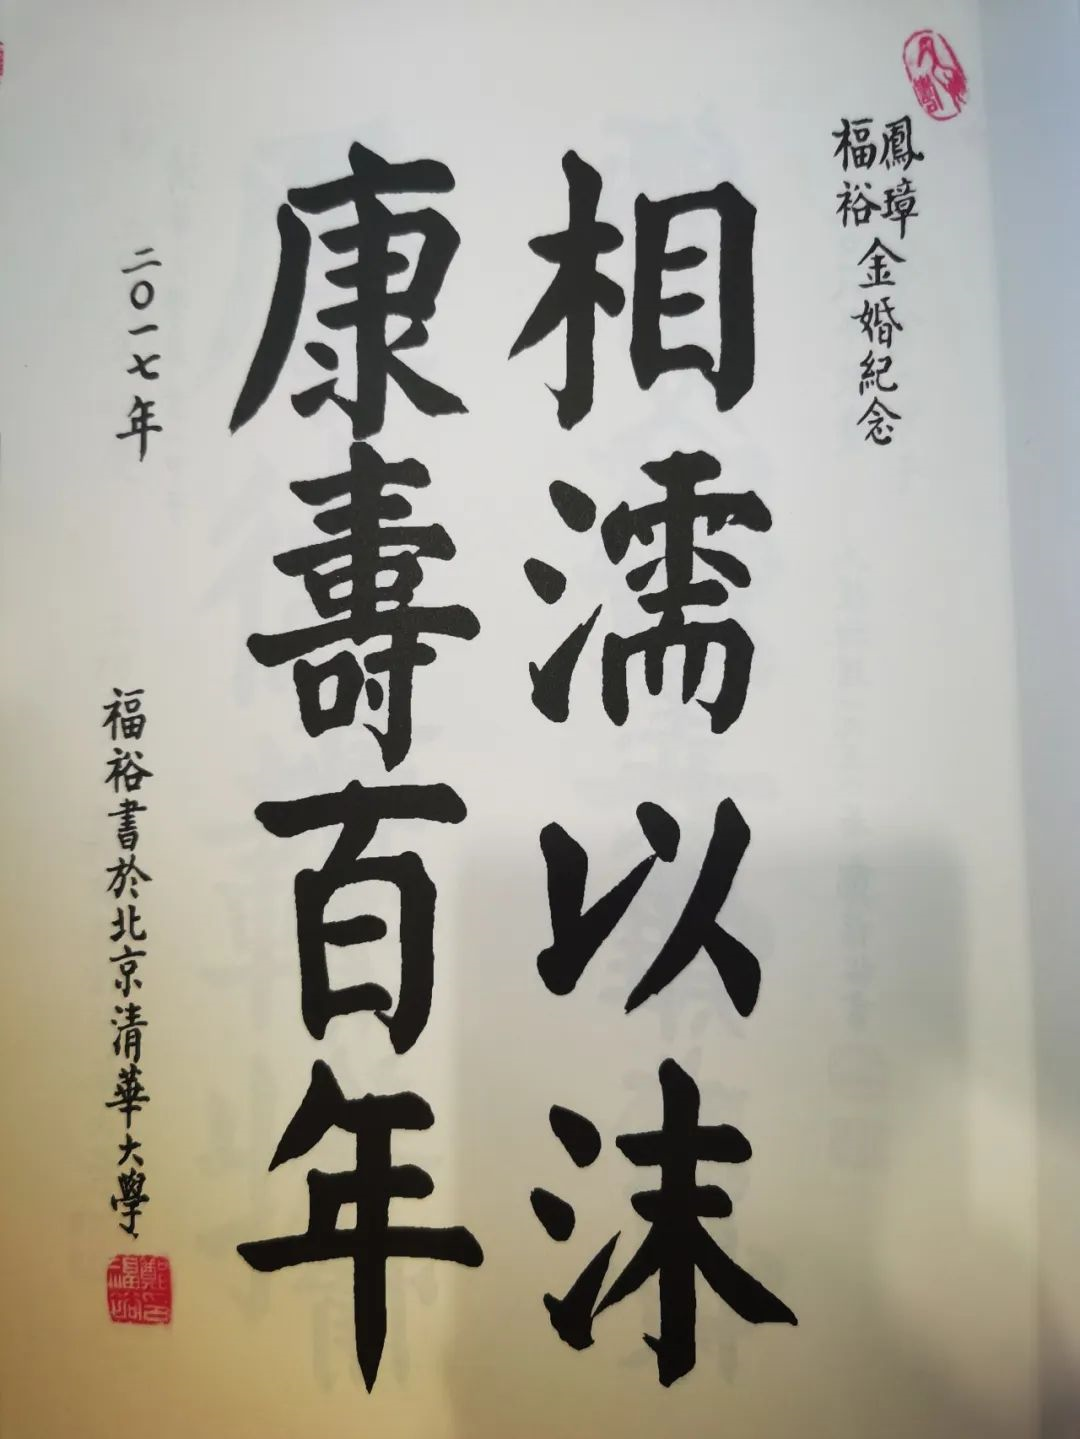 鳳璋
福裕
金婚紀念
相濡以沫
康壽百年
二〇一七年
福裕書於北京清華大學